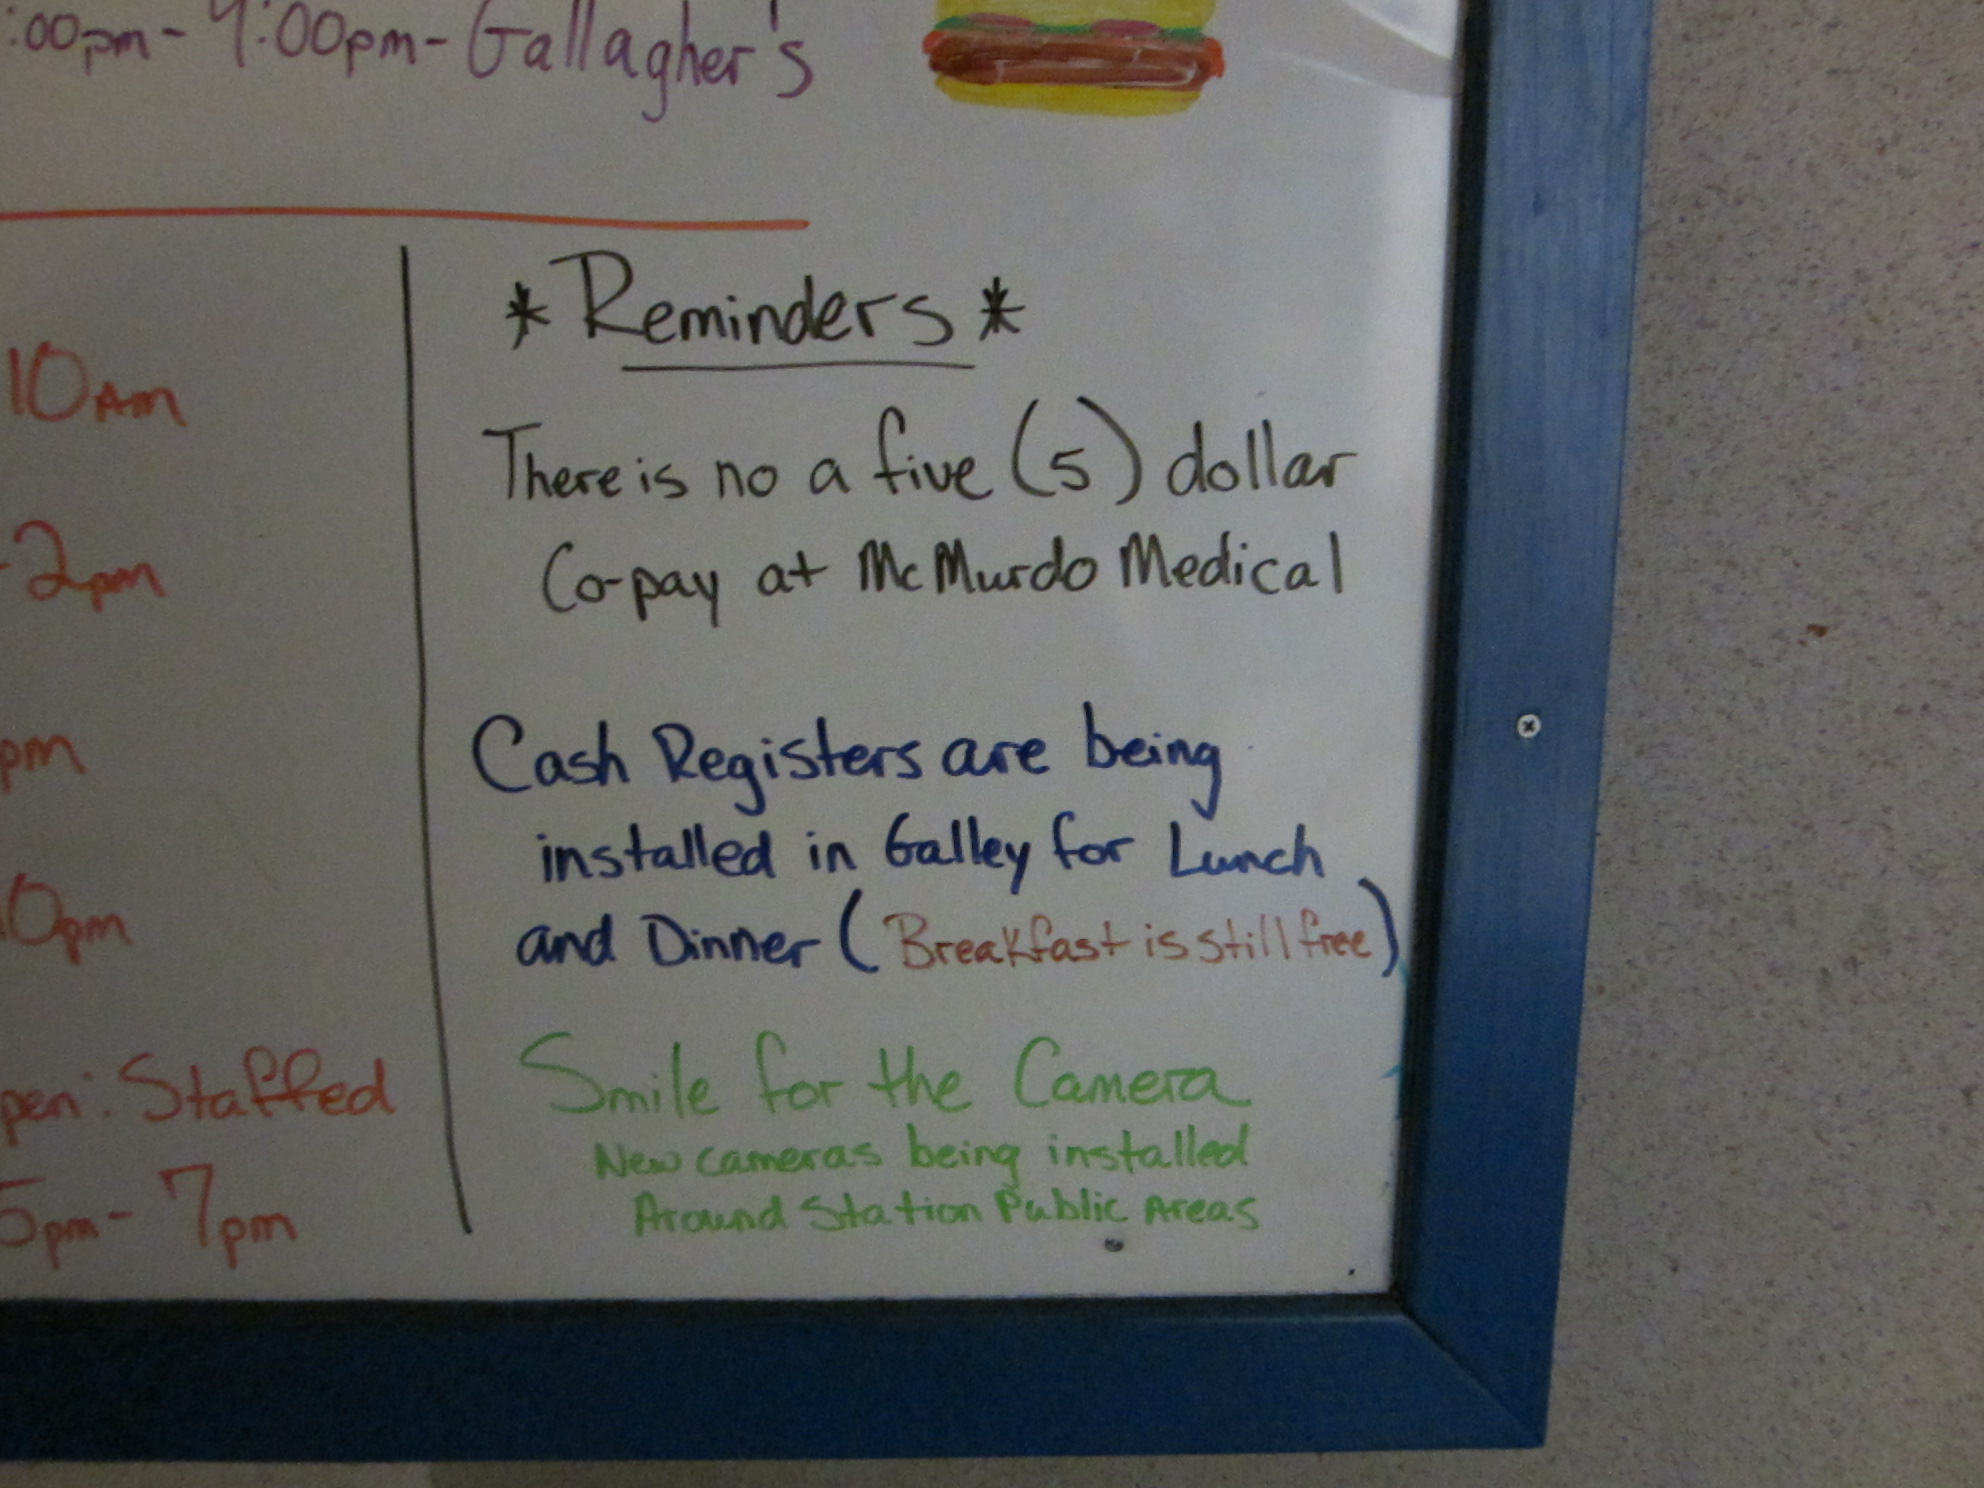 :00pm- 9:00pm- Gallagher's
10AM
-2pm
pm
0pm
pen: Staffed
5pm- 7pm
*Reminders*
There is no a five (5) dollar
Co-pay at McMurdo Medical
Cash Registers are being
installed in Galley for Lunch
and Dinner (Breakfast is still free)
Smile for the Camera
New cameras being installed
Around Station Public Areas